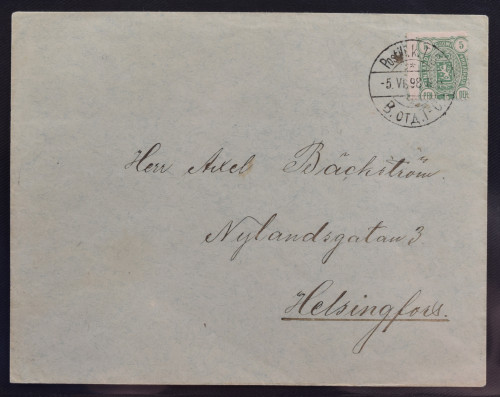 5
-5.VI.98
Herr Axel Bäckström.
Nylandsgatan 3
Helsingfors.